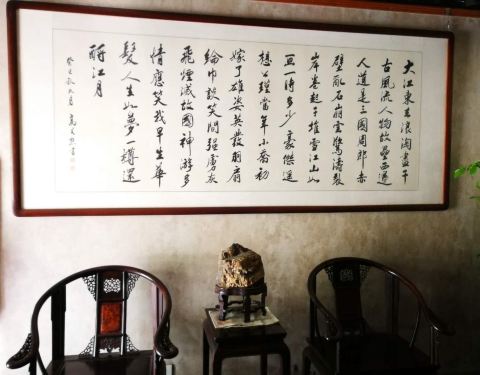 大江東去浪淘盡千
古風流人物故壘西邊
人道是三國周郎赤
壁亂石崩雲驚濤裂
岸卷起千堆雪江山如
畫一時多少豪傑遥
想公瑾當年小喬初
嫁了雄姿英發羽扇
綸巾談笑間强虜灰
飛煙滅故國神游多
情應笑我早生華
髮人生如夢一樽還
酹江月
癸巳秋九月